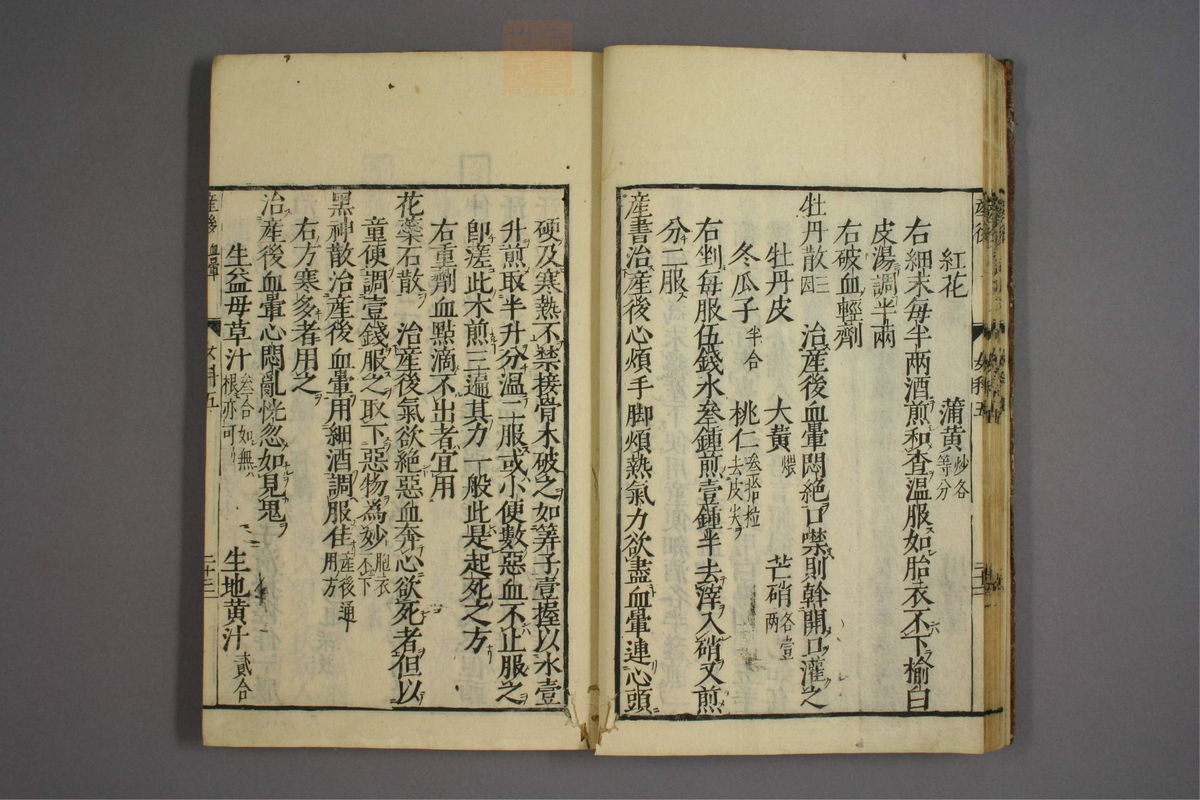 產後
女科五
紅花 蒲黃 炒各等分
右細末每半兩酒煎和查溫服如胎衣不下榆白
皮湯調半兩
右破血輕劑
牡丹散 治產後血暈悶絕口噤則斡開口灌之
牡丹皮 大黃 煨 芒硝 各壹兩
冬瓜子 半合 桃仁 叄拾粒去皮尖
右剉每服伍錢水叄鍾煎壹鍾半去滓入硝又煎
分二服
產書治產後心煩手脚煩熱氣力欲盡血暈連心頭
硬及寒熱不禁接骨木破之如筭子壹握以水壹
升煎取半升分溫二服或小便數惡血不止服之
即瘥此木煎三遍其力一般此是起死之方
右重劑血點滴不出者宜用
花蘂石散 治產後氣欲絕惡血奔心欲死者但以
童便調壹錢服之取下惡物為妙 胞衣不下
黑神散治產後血暈用細酒調服佳 產後通用方
右方寒多者用之
治產後血暈心悶亂恍忽如見鬼
生益母草汁 叄合如無根亦可 生地黃汁 貳合
產後 血暈
女科五
二十三